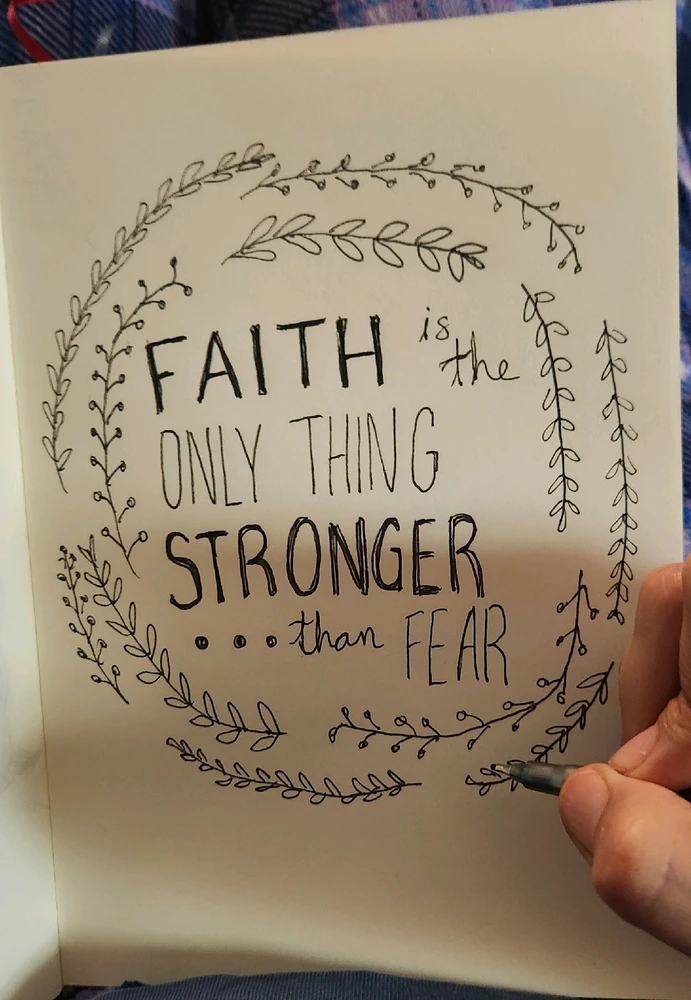 FAITH is the
ONLY THING
STRONGER
...than FEAR